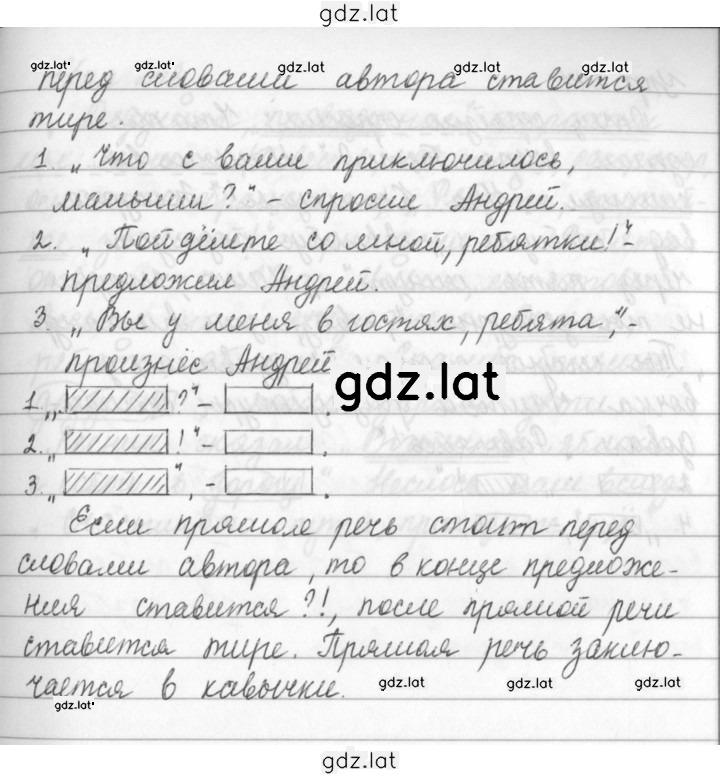 gdz.lat
gdz.lat gdz.lat gdz.lat gdz.lat
перед словами автора ставится
тире.
1. „Что с вами приключилось,
малыши?“ – спросил Андрей.
2. „Пойдёмте со мной, ребятки!“ –
предложил Андрей.
3. „Вы у меня в гостях, ребята“, –
произнёс Андрей
gdz.lat
1. „ ?“ – .
2. „ !“ – .
3. „ “, – .
Если прямая речь стоит перед
словами автора, то в конце предложе-
ния ставится ?!, после прямой речи
ставится тире. Прямая речь заклю-
чается в кавычки.
gdz.lat gdz.lat gdz.lat gdz.lat
gdz.lat